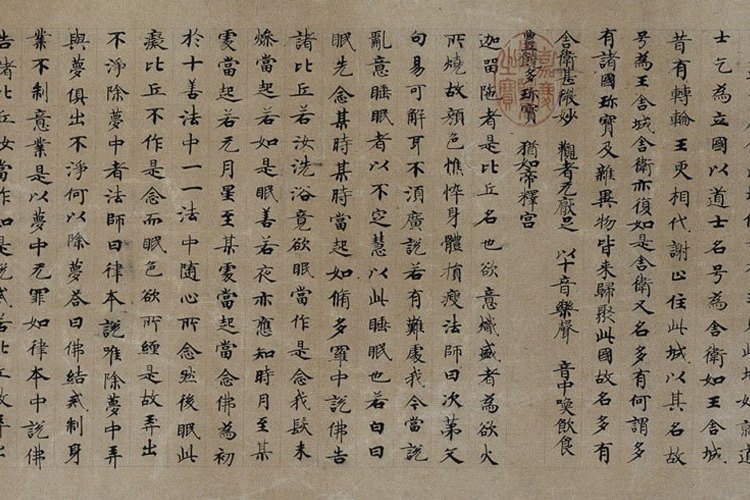 好就道
士乞為立國以道士名号為舍衛如王舍城
昔有轉輪王更相代謝止住此城以其名故
号為王舍城舍衛亦復如是舍衛又名多有何謂多
有諸國珎寶及雜異物皆来歸聚此國故名多有
舍衛甚微妙 觀者无厭足 以十音樂聲 音中喚飲食
豐饒多珎寶 猶如帝釋宮
迦留陁者是比丘名也欲意熾盛者為欲火
所燒故顏色憔悴身體損瘦法師曰次第文
句易可解耳不湏廣説若有難處我今當説
亂意睡眠者以不定慧以此睡眠也若白日
眠先念某時某時當起如脩多羅中説佛告
諸比丘若汝洗浴竟欲眠當作是念我髮未
燥當起若如是眠善若夜亦應知時月至某
處當起若无月星至某處當起當念佛為初
於十善法中一一法中随心所念然後眠此
癡比丘不作是念而眠色欲所纏是故弄出
不淨除夢中者法師曰律本説唯除夢中弄
與夢俱出不淨何以除夢荅曰佛結戒制身
業不制意業是以夢中无罪如律本中説佛
告諸比丘汝當作如是説戒若比丘故弄出